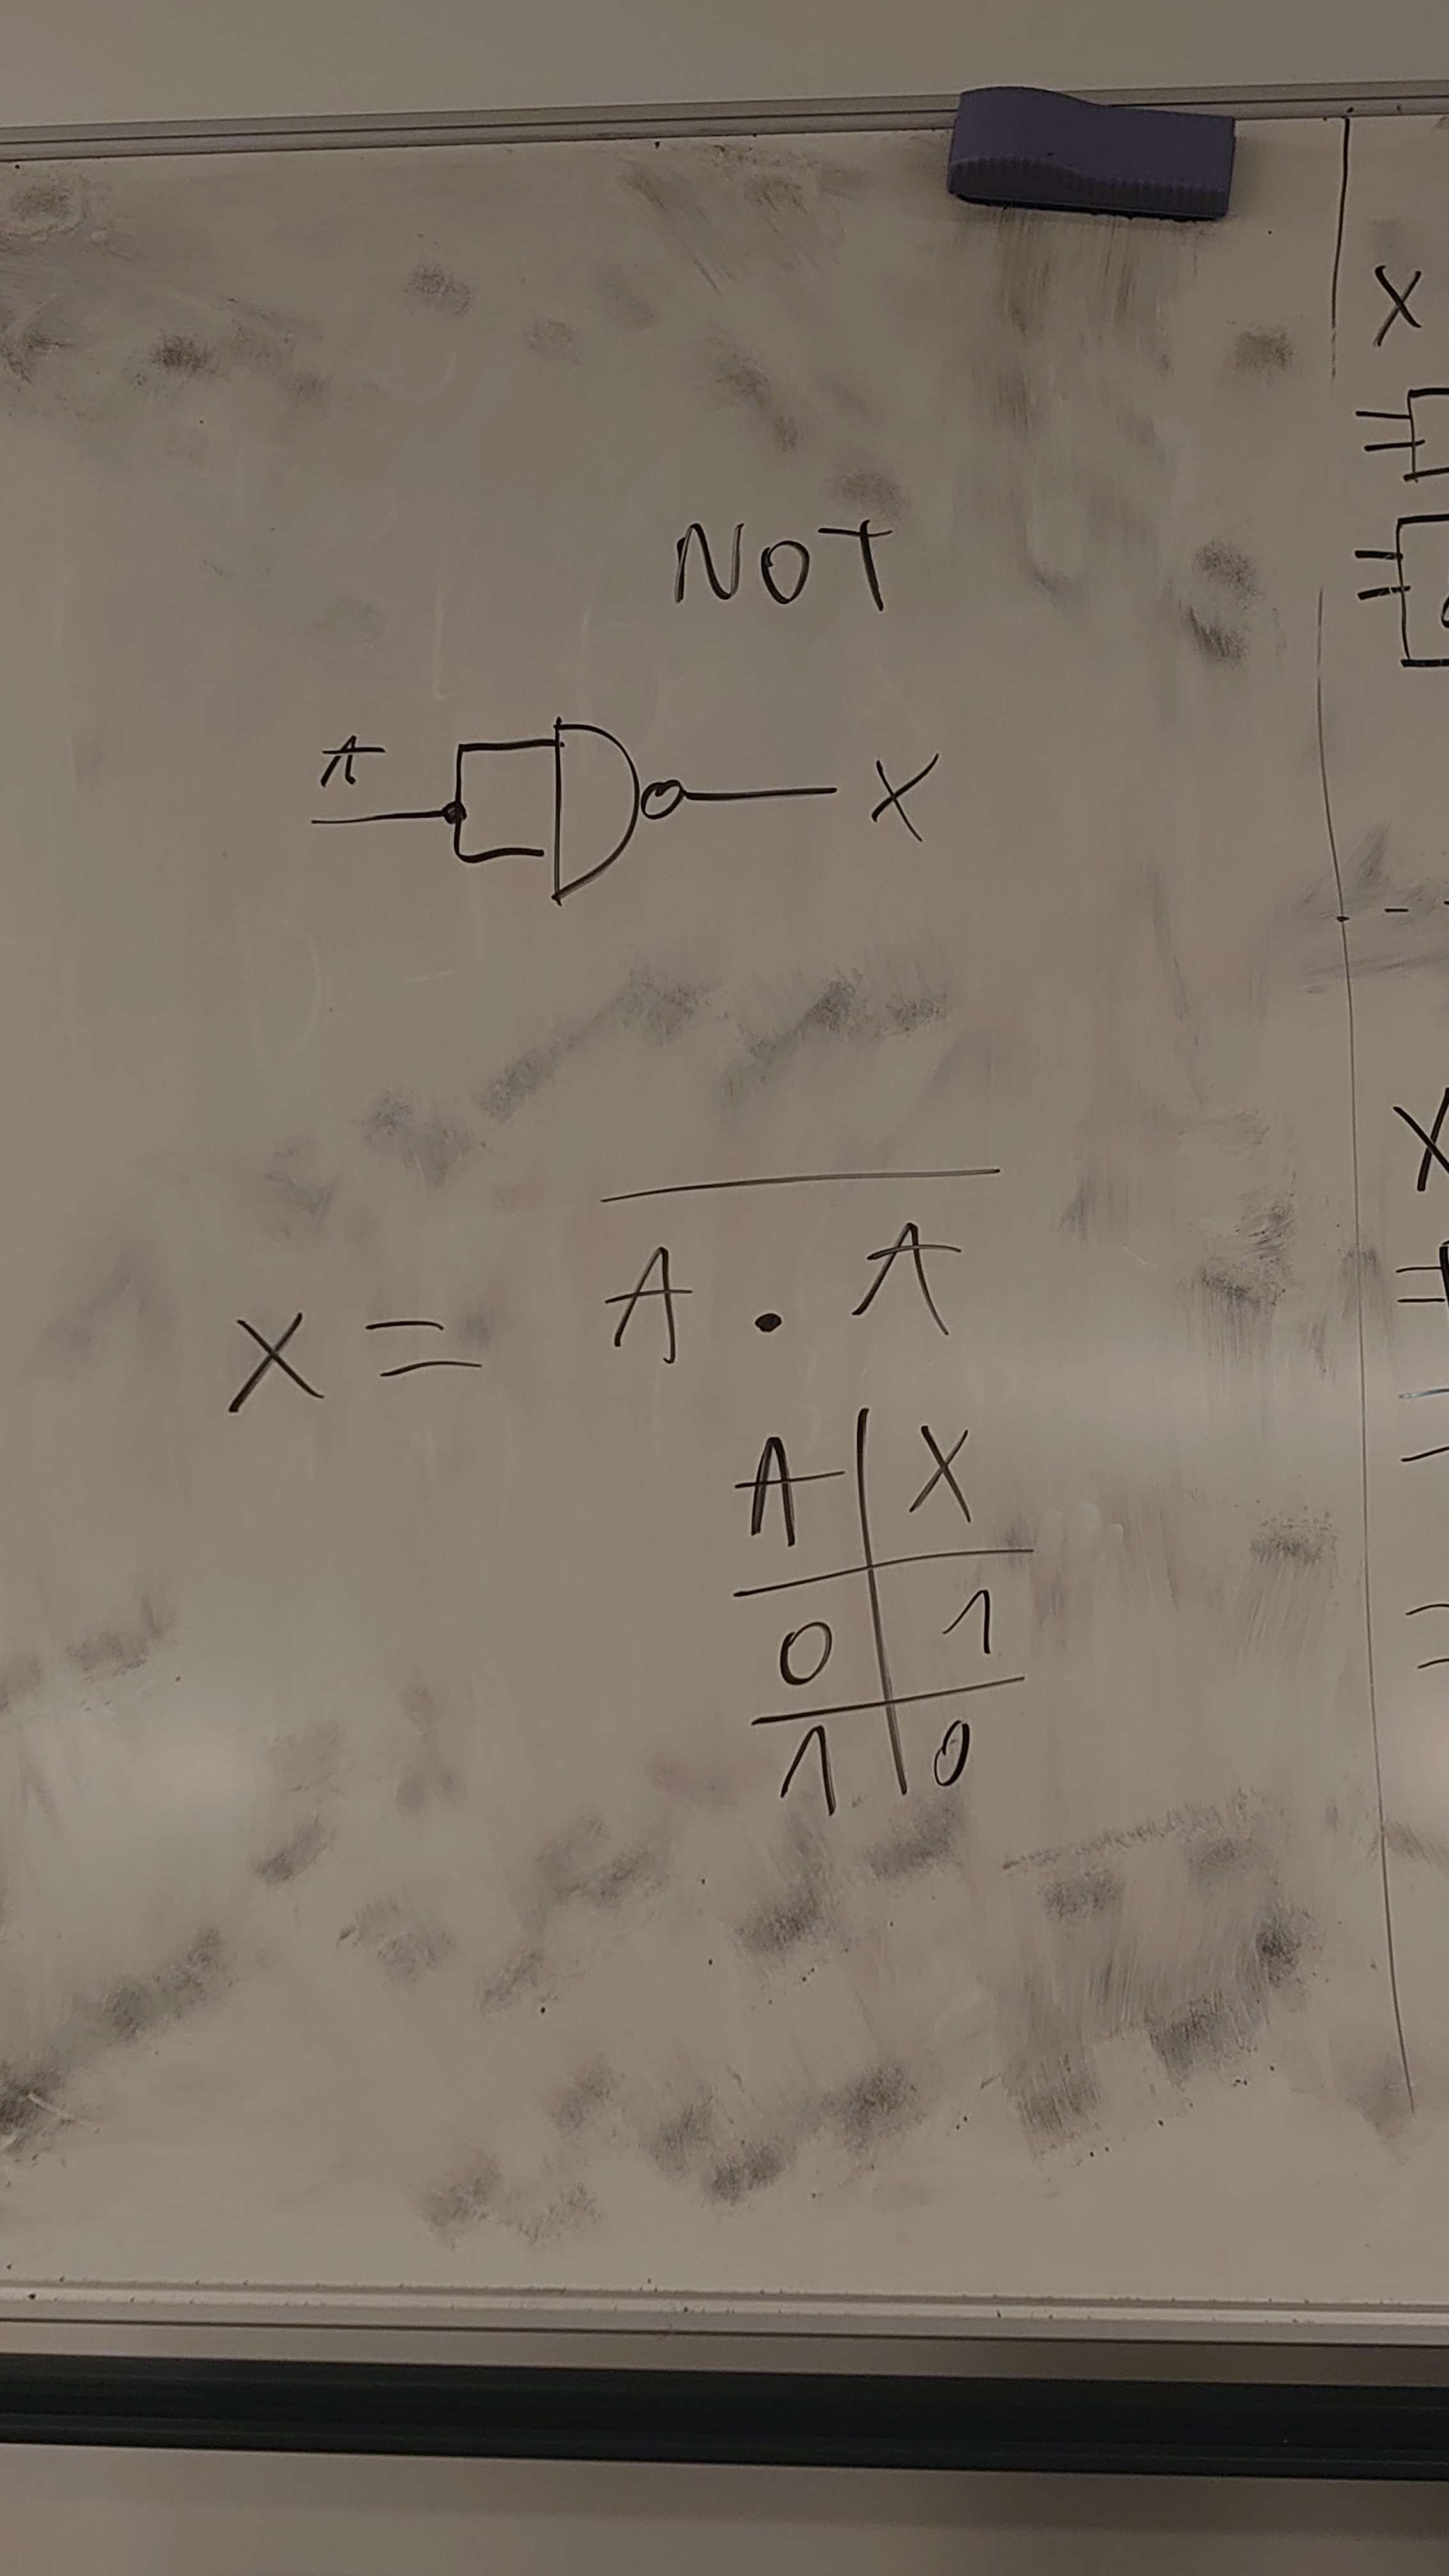 NOT
A
X
X = \overline{A . A}
A | X
0 | 1
1 | 0
X
X